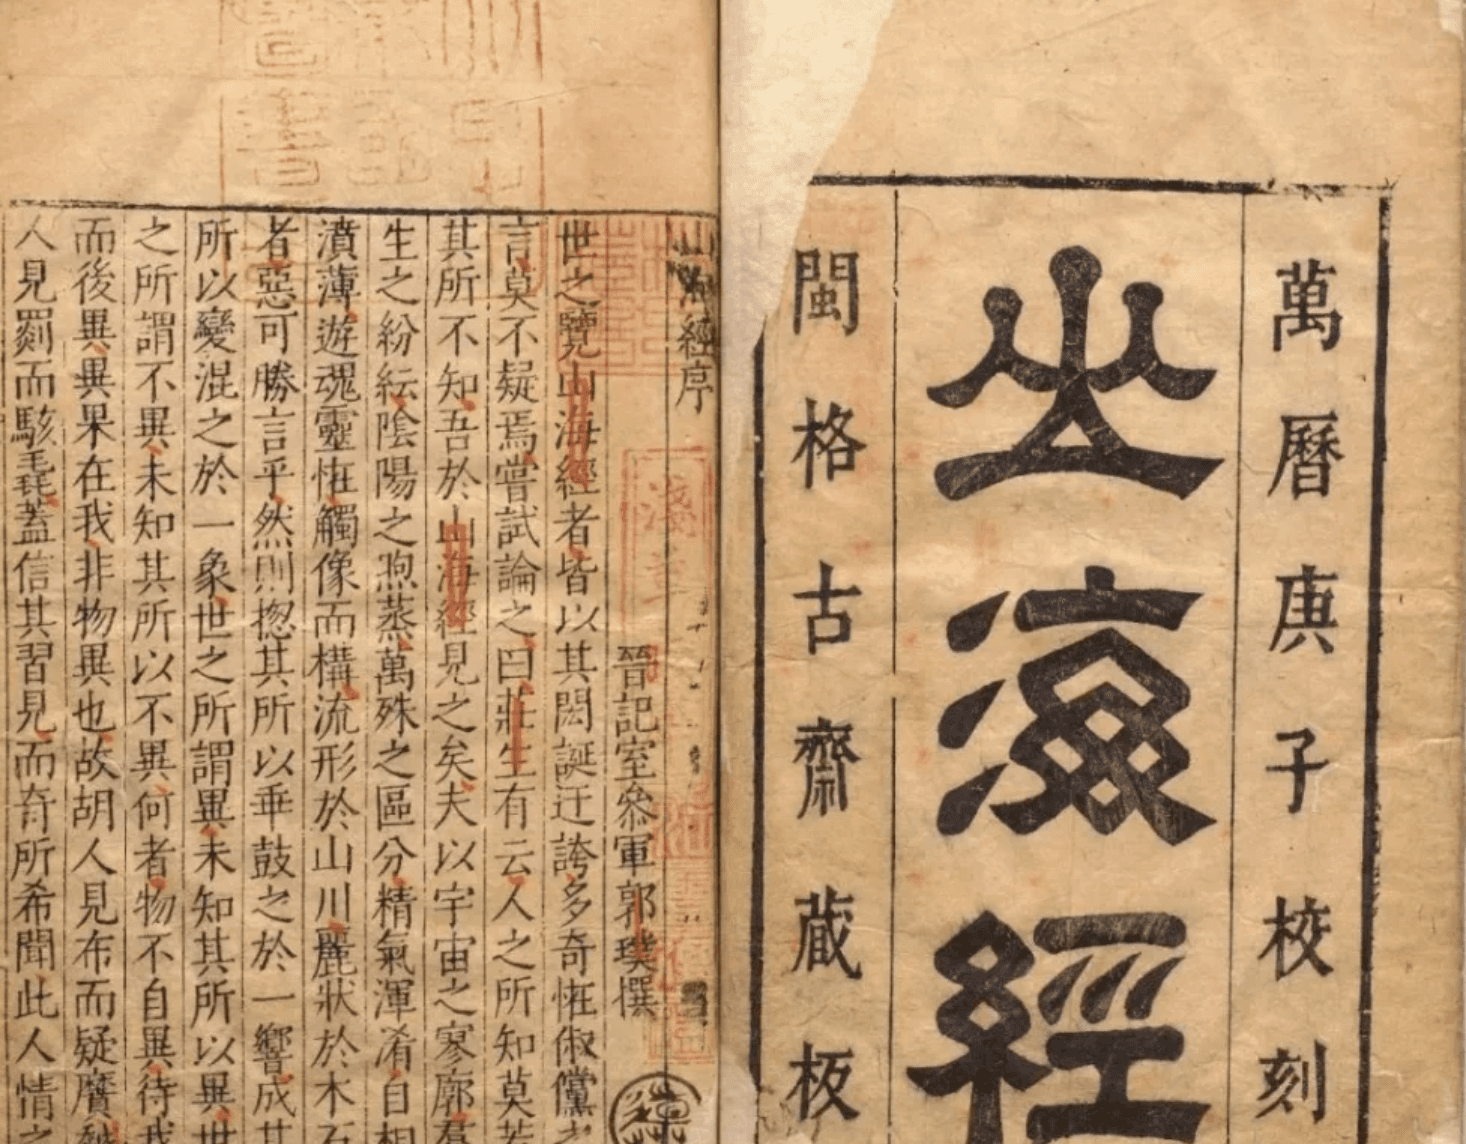 萬曆庚子校刻
山海經
閩格古齋藏板
山海經序
晉記室叅軍郭璞撰
世之覽山海經者皆以其閎誕迂誇多奇恠俶儻
言莫不疑焉嘗試論之曰莊生有云人之所知莫若
其所不知吾於山海經見之矣夫以宇宙之寥廓羣
生之紛紜陰陽之煦蒸萬殊之區分精氣渾淆自相
濆薄遊魂靈恠觸像而構流形於山川麗狀於木石
者惡可勝言乎然則揔其所以乖鼓之於一響成其
所以變混之於一象世之所謂異未知其所以異世
之所謂不異未知其所以不異何者物不自異待我
而後異異果在我非物異也故胡人見布而疑黂
人見罽而駭毳蓋信其習見而奇所希聞此人情之